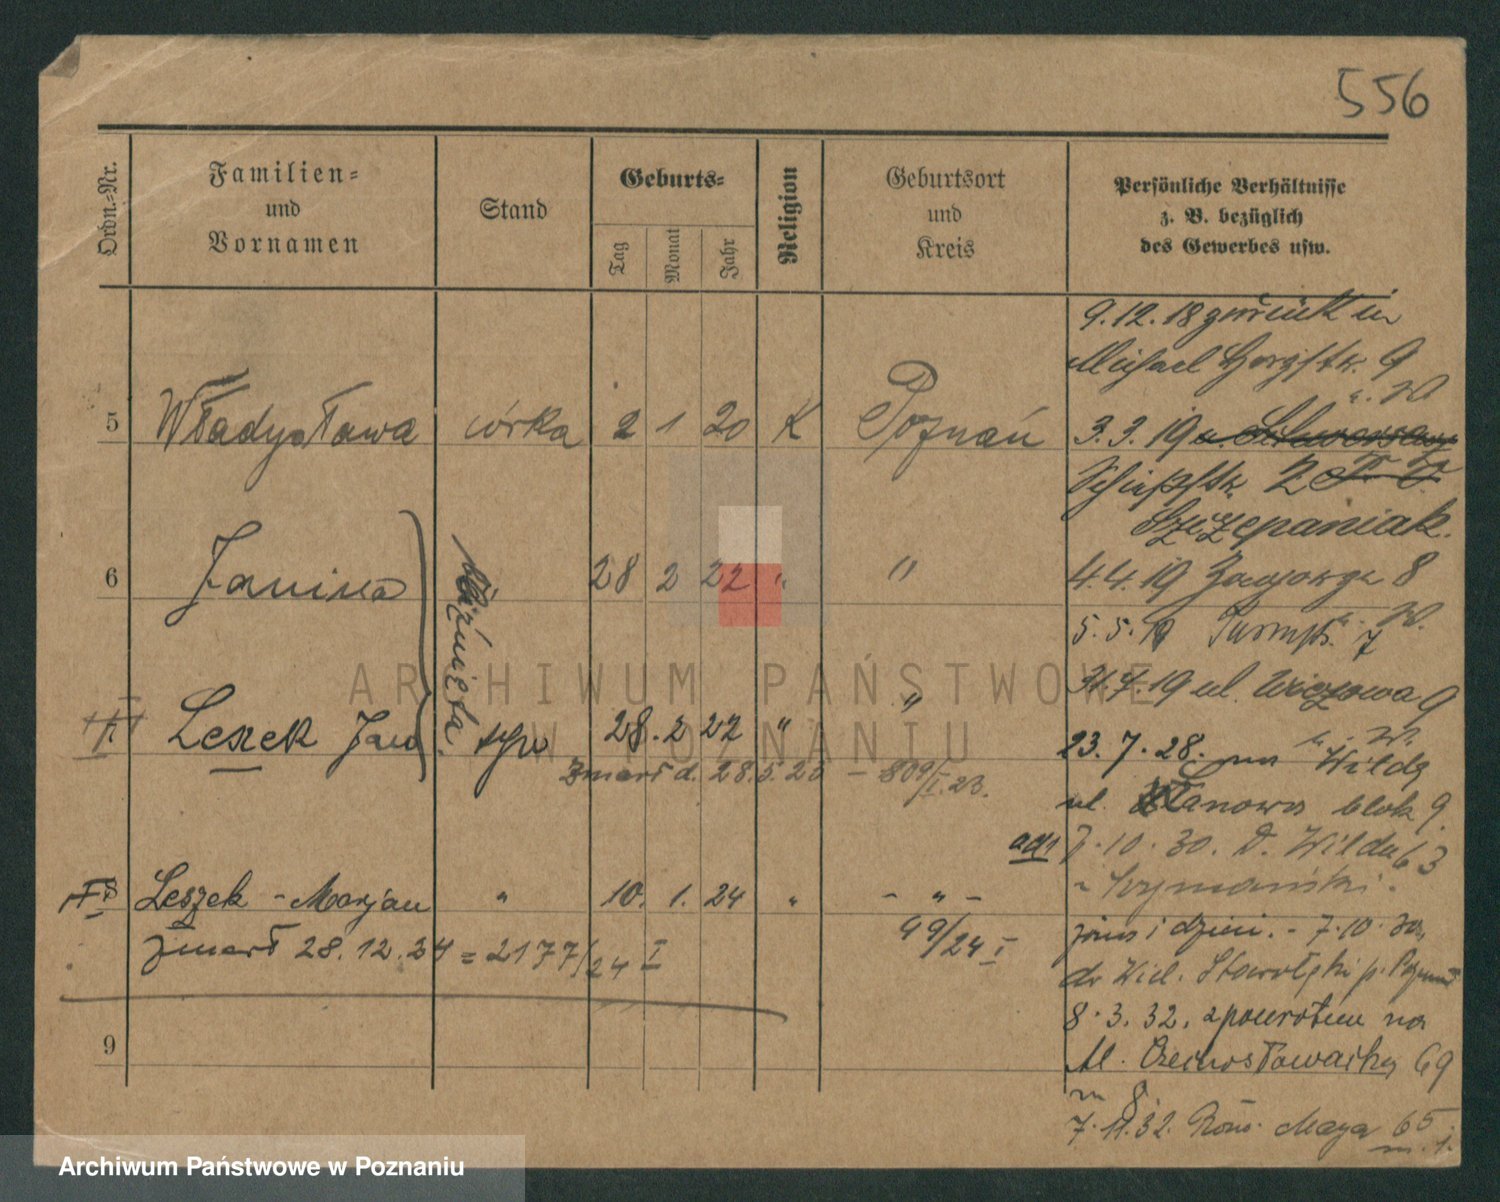 556
Ordn.-Nr.
Familien-
und
Vornamen
Stand
Geburts-
Tag
Monat
Jahr
Religion
Geburtsort
und
Kreis
Persönliche Verhältnisse
z. B. bezüglich
des Gewerbes usw.
9.12.18 zurück in
Michael Hergstr. 9
5 Władysława córka 2 1 20 K Poznań
3.3.19
Schießstr. 2
Szczepaniak.
6 Janina 28 2 22 " "
bliźnięta.
4.4.19 8
5.5.19 Turmstr. 7
31.7.19 ul. Wiązowa 9
Leszek Jan syn 28. 2 22 " "
zmarł d. 28.5.23 – 809/I.23.
23.7.28. na Wildę
ul. Łanowa blok 9.
ad 1 7.10.30. D. Wilda 63
Szymański.
8 Leszek – Marjan " 10. 1. 24 " – " –
99/24 I
zmarł 28.12.24 = 2177/24 I
żona i dzieci. – 7.10.30,
8.3.32. zpowrotem na
Czechosłowacką 69
m 8.
9
7.11.32. Maya 65
m. 1.
ARCHIWUM PAŃSTWOWE
W POZNANIU
Archiwum Państwowe w Poznaniu